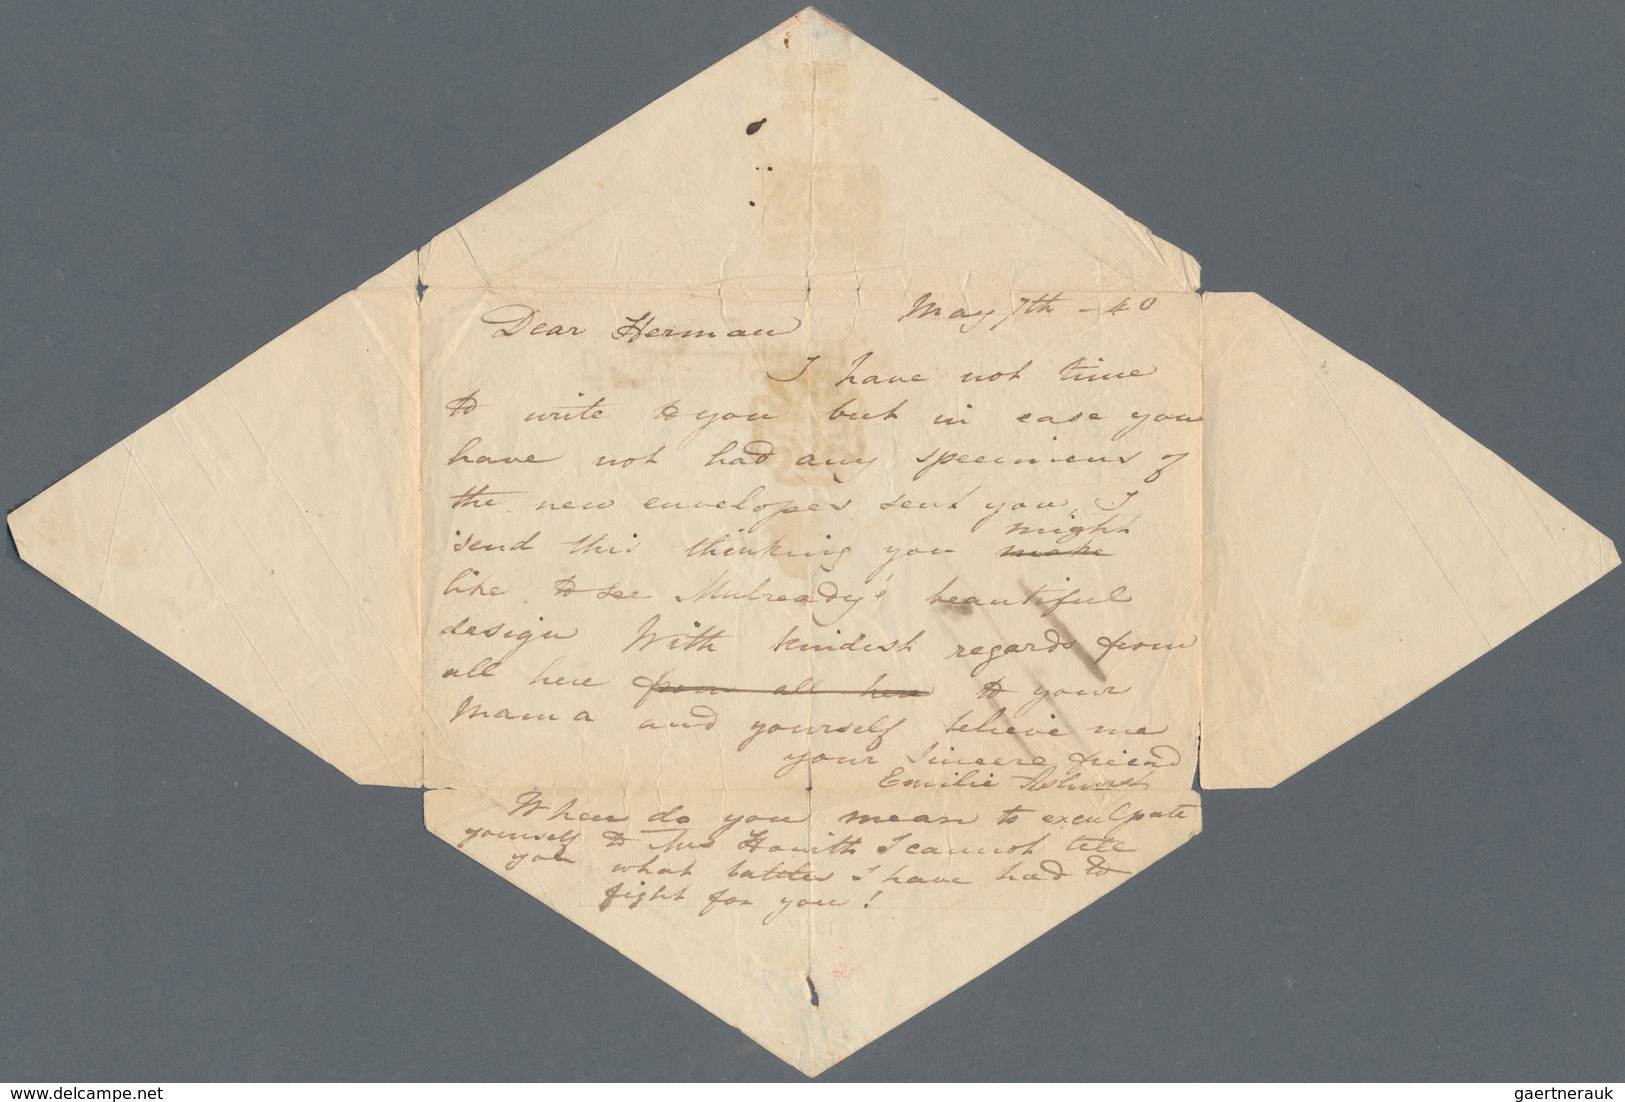 May 7th - 40
Dear Herman
I have not time
to write to you but in case you
have not had any specimens of
the new envelopes sent you, I
might
send this thinking you make
like to see Mulready's beautiful
design With kindest regards from
all here from all here to your
Mama and yourself believe me
your sincere friend
Emilie Ashurst
When do you mean to exculpate
yourself to Mrs Howitt I cannot tell
you what battles I have had to
fight for you!
www.delcampe.net
gaertnerauk